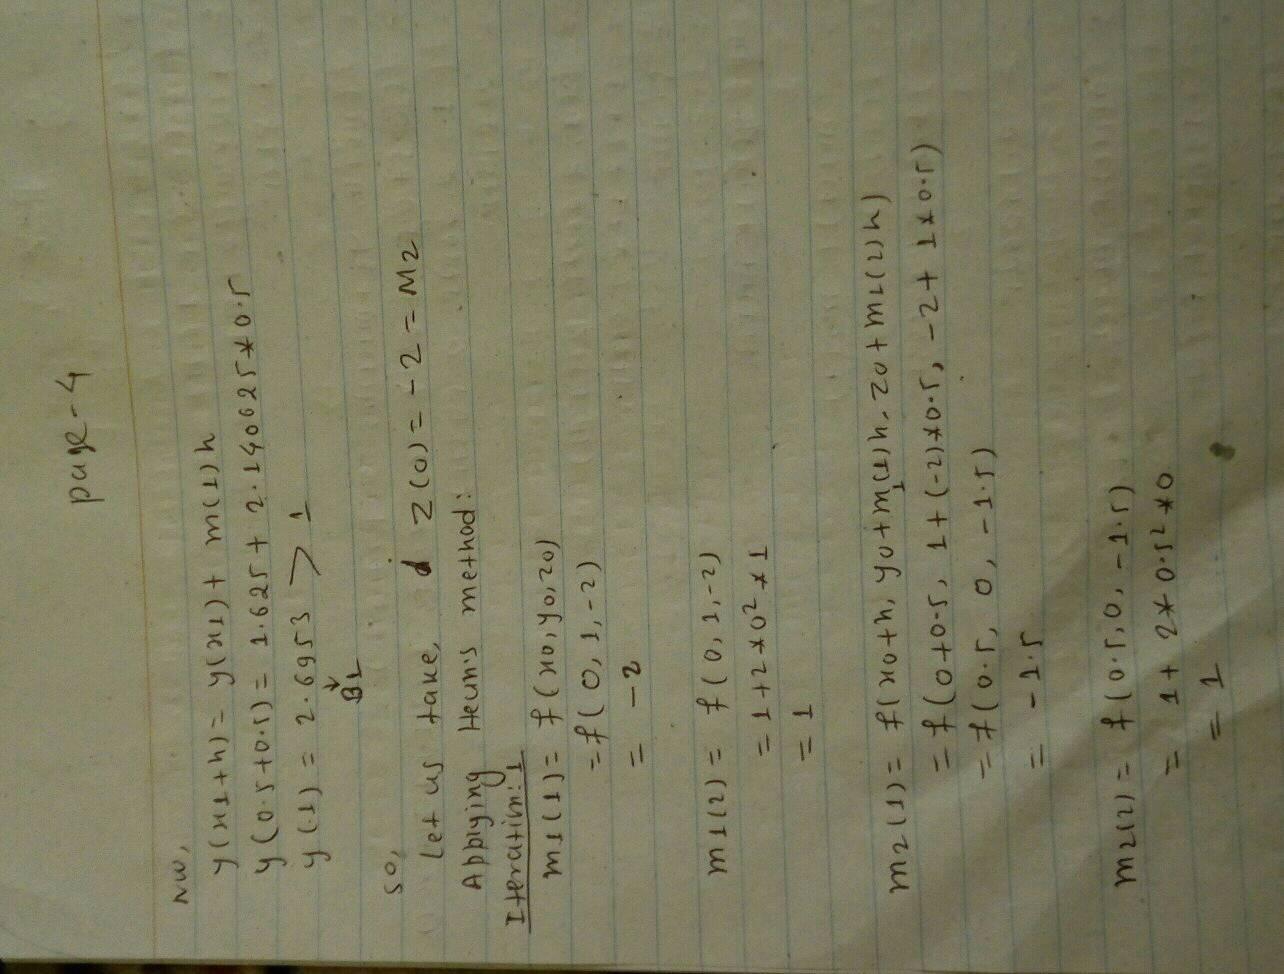 page-4
NW,
y(x1+h) = y(x1) + m(1)h
y(0.5+0.5) = 1.625 + 2.140625*0.5
y(1) = 2.6953 > 1
↓
B1
so,
Let us take, z(0) = -2 = M2
Applying Heun's method:
Iteration:-1
m1(1) = f(x0, y0, z0)
= f(0, 1, -2)
= -2
m1(2) = f(0, 1, -2)
= 1+2*0²*1
= 1
m2(1) = f(x0+h, y0+m1(1)h, z0+m1(2)h)
= f(0+0.5, 1+(-2)*0.5, -2+1*0.5)
= f(0.5, 0, -1.5)
= -1.5
m2(2) = f(0.5, 0, -1.5)
= 1 + 2*0.5²*0
= 1